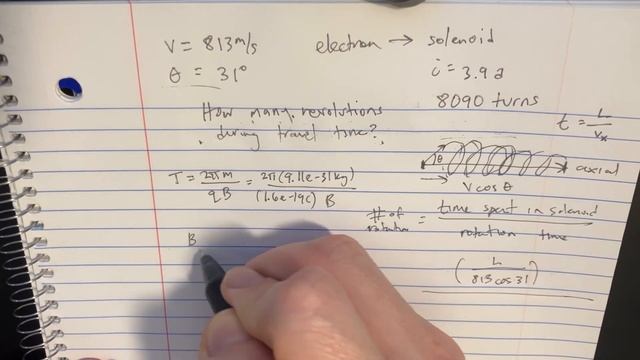 v = 813 m/s electron → solenoid
θ = 31° i = 3.9 a
8090 turns
How many revolutions
during travel time?
t = L / vx
θ → axial
v cos θ
T = 2πm / qB = 2π(9.11e-31kg) / (1.6e-19C) B
# of rotation = time spent in solenoid / rotation time
( L / 813 cos 31 )
B